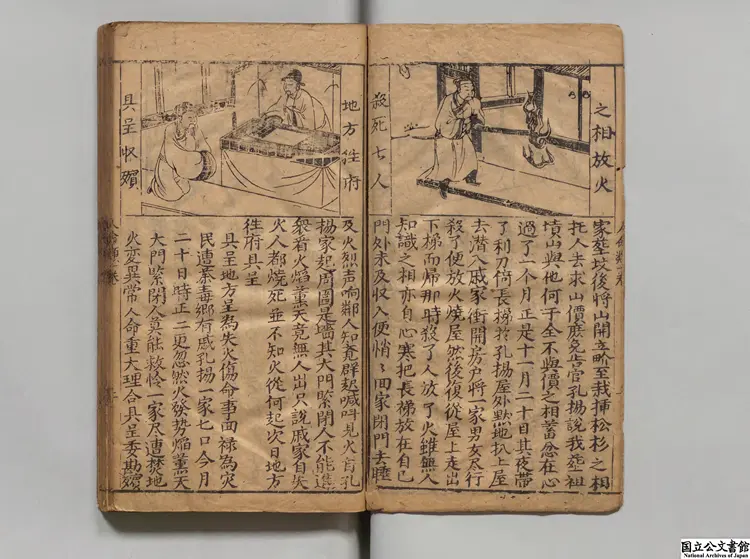 之相放火
殺死七人
人命類一卷
家塋坟後將山開立畍至栽揷松杉之相
托人去求山價庶免告官孔揚說我塟祖
墳山與他何干全不與價之相蓄忿在心
過了一个月正是十一月二十日其夜帶
了利刀倚長梯於孔揚屋外黙地扒上屋
去潜入戚家衝開房户將一家男女尽行
殺了便放火燒屋然後復從屋上走出
下梯而帰那時殺了人放了火雖無人
知識之相亦自心寒把長梯放在自己
門外未及収入便悄〻回家閉門去睡
地方徃府
具呈収殯
及火烈声响鄰人知覚群起喊呌見火肓孔
揚家起周圍是墻其大門緊閉人不能進
衆看火焰薰天竟無人出只說戚家自失
火人都燒死並不知火從何起次日地方
徃府具呈
具呈地方呈為失火傷命事面禄為灾
民遭荼毒鄉有戚孔揚一家七口今月
二十日時正二更忽然火發势焰薰天
大門緊閉人莫能救怜一家尽遭焚地
火変異常人命重大理合具呈委勘殯
国立公文書館
National Archives of Japan